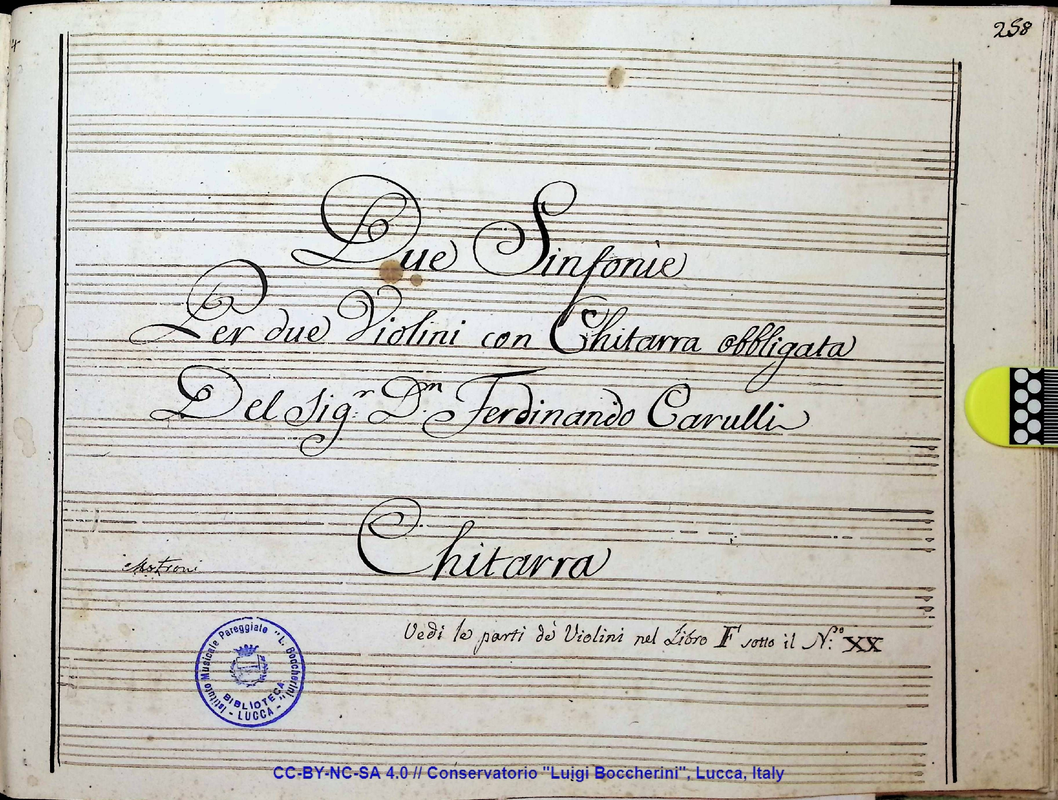 258
Due Sinfonie
Per due Violini con Chitarra obbligata
Del Sigr. Dn. Ferdinando Carulli
Chitarra
Vedi le parti de' Violini nel Libro F sotto il N.ro XX
Istituto Musicale Pareggiato "L. Boccherini"
BIBLIOTECA
- LUCCA -
CC-BY-NC-SA 4.0 // Conservatorio "Luigi Boccherini", Lucca, Italy